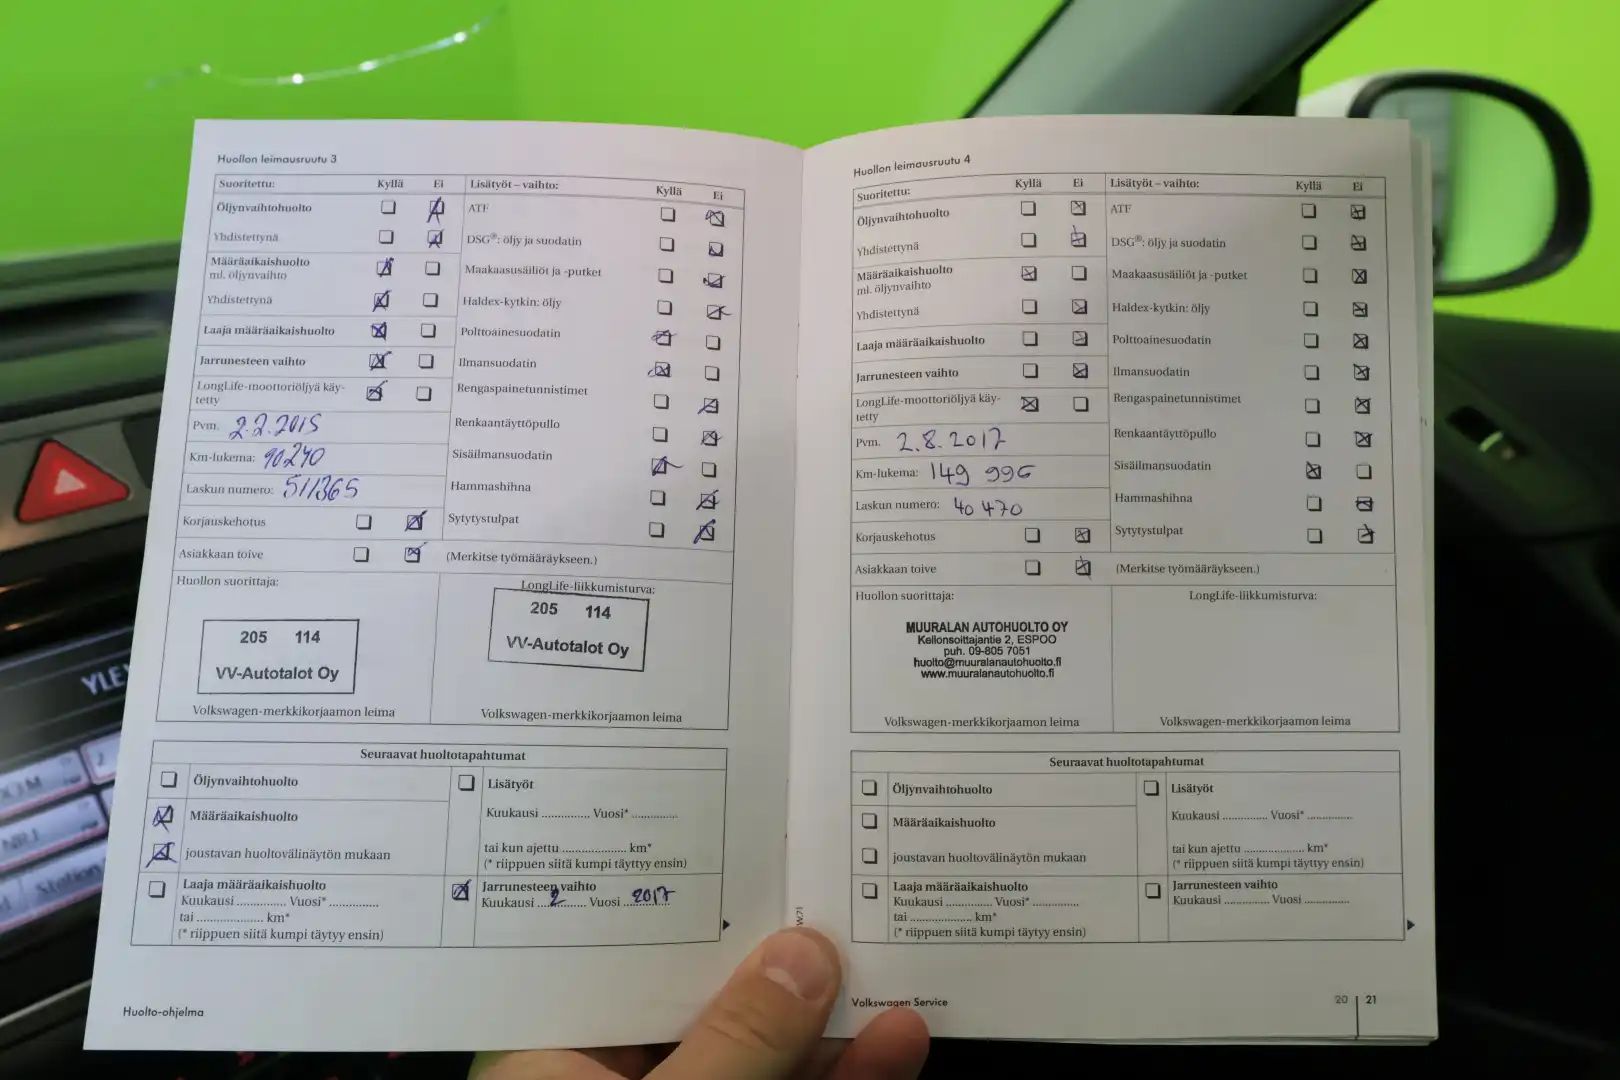 Huollon leimausruutu 3
Suoritettu: Kyllä Ei Lisätyöt – vaihto: Kyllä Ei
Öljynvaihtohuolto ATF
Yhdistettynä DSG®: öljy ja suodatin
Määräaikaishuolto
ml. öljynvaihto Maakaasusäiliöt ja -putket
Yhdistettynä Haldex-kytkin: öljy
Laaja määräaikaishuolto Polttoainesuodatin
Jarrunesteen vaihto Ilmansuodatin
LongLife-moottoriöljyä käy-
tetty Rengaspainetunnistimet
Pvm. 2.2.2015 Renkaantäyttöpullo
Km-lukema: 90240 Sisäilmansuodatin
Laskun numero: 511365 Hammashihna
Korjauskehotus Sytytystulpat
Asiakkaan toive (Merkitse työmääräykseen.)
Huollon suorittaja: LongLife-liikkumisturva:
205 114
VV-Autotalot Oy
205 114
VV-Autotalot Oy
Volkswagen-merkkikorjaamon leima Volkswagen-merkkikorjaamon leima
Seuraavat huoltotapahtumat
Öljynvaihtohuolto Lisätyöt
Määräaikaishuolto Kuukausi .............. Vuosi* .............
joustavan huoltovälinäytön mukaan tai kun ajettu .................... km*
(* riippuen siitä kumpi täyttyy ensin)
Laaja määräaikaishuolto Jarrunesteen vaihto
Kuukausi .............. Vuosi* .............. Kuukausi 2 Vuosi 2017
tai .................... km*
(* riippuen siitä kumpi täytyy ensin)
Huolto-ohjelma
Huollon leimausruutu 4
Suoritettu: Kyllä Ei Lisätyöt – vaihto: Kyllä Ei
Öljynvaihtohuolto ATF
Yhdistettynä DSG®: öljy ja suodatin
Määräaikaishuolto
ml. öljynvaihto Maakaasusäiliöt ja -putket
Yhdistettynä Haldex-kytkin: öljy
Laaja määräaikaishuolto Polttoainesuodatin
Jarrunesteen vaihto Ilmansuodatin
LongLife-moottoriöljyä käy-
tetty Rengaspainetunnistimet
Pvm. 2.8.2017 Renkaantäyttöpullo
Km-lukema: 149 996 Sisäilmansuodatin
Laskun numero: 40 470 Hammashihna
Korjauskehotus Sytytystulpat
Asiakkaan toive (Merkitse työmääräykseen.)
Huollon suorittaja: LongLife-liikkumisturva:
MUURALAN AUTOHUOLTO OY
Kellonsoittajantie 2, ESPOO
puh. 09-805 7051
huolto@muuralanautohuolto.fi
www.muuralanautohuolto.fi
Volkswagen-merkkikorjaamon leima Volkswagen-merkkikorjaamon leima
Seuraavat huoltotapahtumat
Öljynvaihtohuolto Lisätyöt
Määräaikaishuolto Kuukausi .............. Vuosi* .............
joustavan huoltovälinäytön mukaan tai kun ajettu .................... km*
(* riippuen siitä kumpi täyttyy ensin)
Laaja määräaikaishuolto Jarrunesteen vaihto
Kuukausi .............. Vuosi* .............. Kuukausi .............. Vuosi .............
tai .................... km*
(* riippuen siitä kumpi täytyy ensin)
Volkswagen Service 20 21
Station